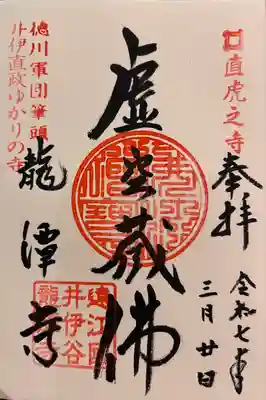 直虎之寺
奉拝
令和七年
三月廿日
虚空蔵佛
徳川軍団筆頭
井伊直政ゆかりの寺
龍潭寺
遠江國
井伊谷